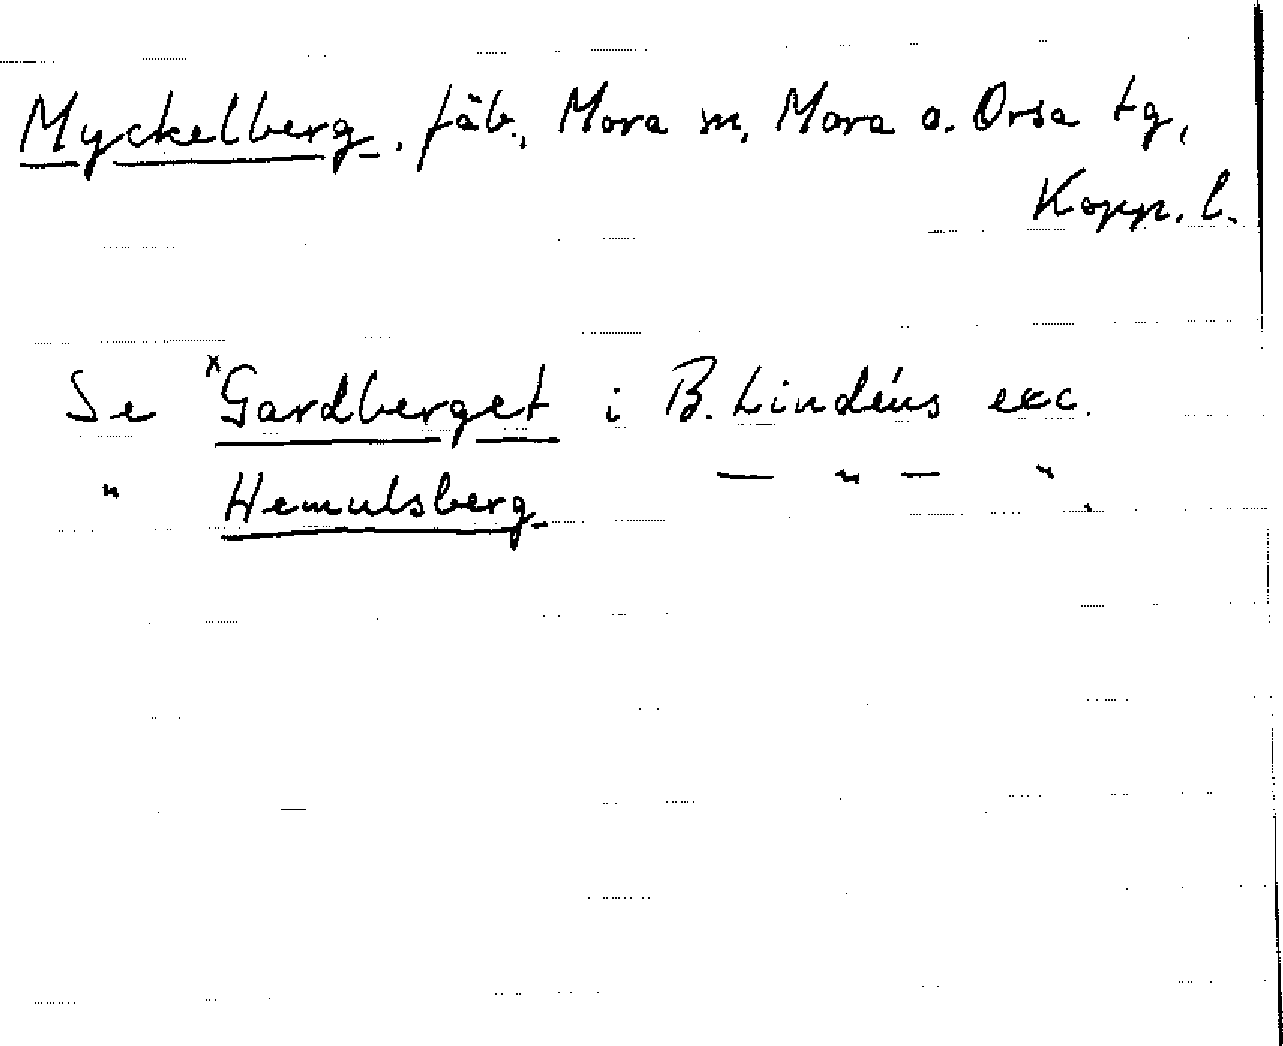 Myckelberg, fäb., Mora sn, Mora o. Orsa tg,
Kopp. l.
Se ˣGardberget i B. Lindéns exc.
" Hemulsberg — " — "